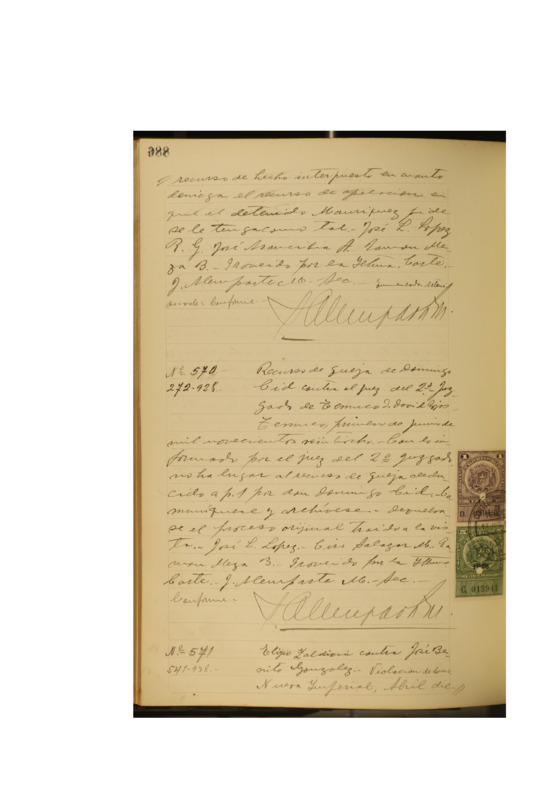 988
recurso de hecho interpuesto en cuanto
deniega el recurso de apelacion en
que el detenido Mauriquez pide
se le tenga como tal.- José L. Lopez
R. G. José Aramon
za B.- Proveido por la Iltma. Corte.-
J. Alemparte M.- Sec.-
Conforme.-
JAlemparte M.
Nº 570
272-928.
Recurso de queja de Domingo
Cid contra el juez del 2º Juz-
gado de Temuco D. David Rojas
Temuco, primero de junio de
mil novecientos veintiocho.- Con lo in-
formado por el juez del 2º juzgado
no ha lugar al recurso de queja dedu-
cido a p. 1 por don Domingo Cid. Co-
muniquese y archívese.- Devuelva-
se el proceso original traido a la vis-
ta.- José L. Lopez.- Ciro Salazar M. Ra-
mon Meza B.- Proveido por la Iltma
Corte.- J. Alemparte M.- Sec.-
Conforme.-
JAlemparte M.
Nº 571
541-928.-
contra José Be-
nito Gonzalez.- Violacion de
Nueva Imperial, Abril die
1
1
C. 013941